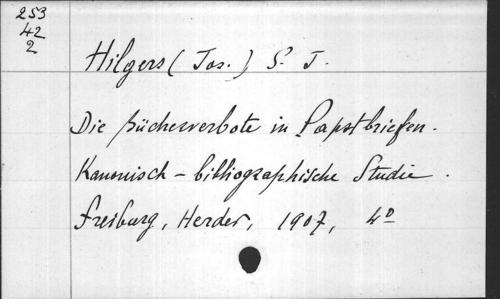 253
42
2
Hilgers (Jos.) S. J.
Die Bücherverbote in Papstbriefen.
Kanonisch - bibliographische Studie.
Freiburg, Herder, 1907, 4º